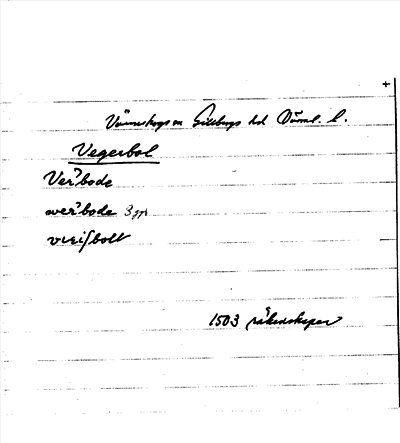 +
Värmskogs sn Gillbergs hd Värml. l.
Vegerbol
Ver?bode
wer?bode 3 ggr
vreisbolt
1503 räkenskaper